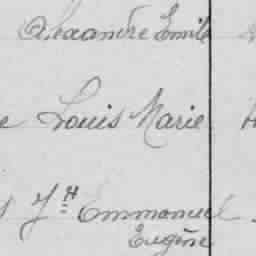 Alexandre Emile
Louis Marie
Jh Emmanuel
Eugène